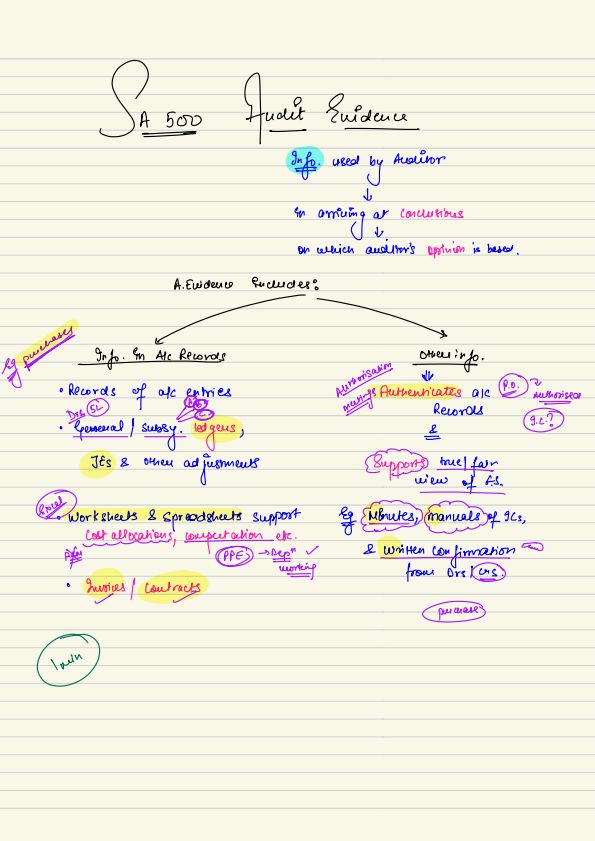 SA 500 Audit Evidence
Info. used by Auditor
↓
In arriving at conclusions
↓
on which auditor's opinion is based.
A.Evidence Includes:
Eg purchases
Info. In A/c Records
• Records of a/c entries
Drs SL
• General / subsy. ledgers,
JEs & other adjustments
Excel
• Worksheets & Spreadsheets support
cost allocations, computation etc.
PPEs → Depn ✓
working
• Invoices / Contracts
1 min
Other info.
Authorisation
meetings
Authenticates a/c
Records
P.O. → Authorised
I.C.?
&
Supports true/fair
view of F.S.
Eg Minutes, manuals of ICs,
& Written confirmation
from Drs/Crs.
purchases